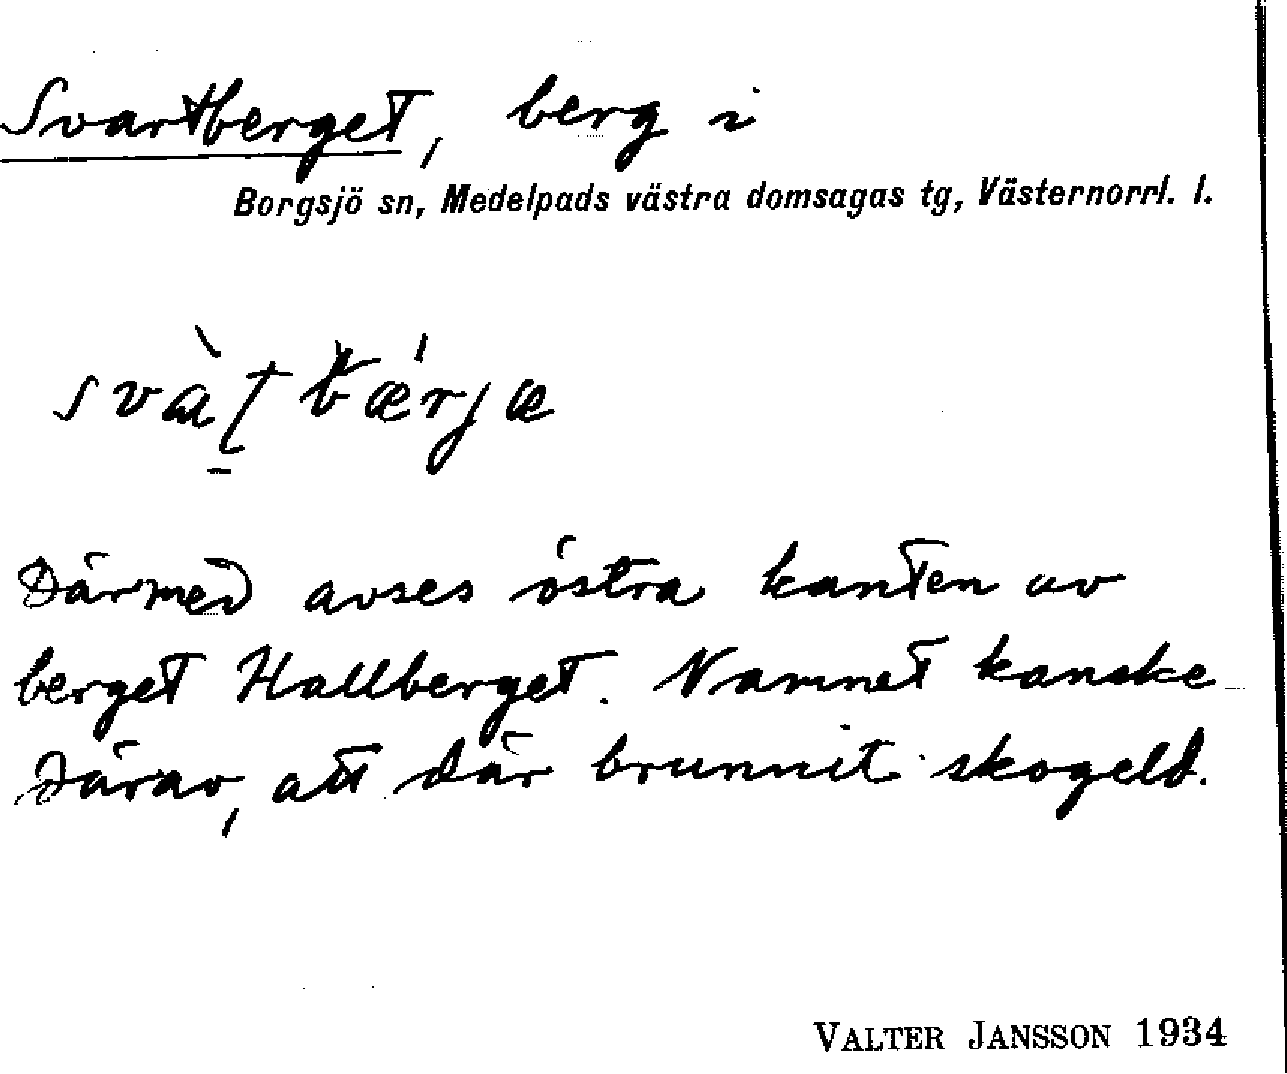 Svartberget, berg i
Borgsjö sn, Medelpads västra domsagas tg, Västernorrl. l.
Därmed avses östra kanten av
berget Hallberget. Namnet kanske
därav, att där brunnit skogeld.
VALTER JANSSON 1934